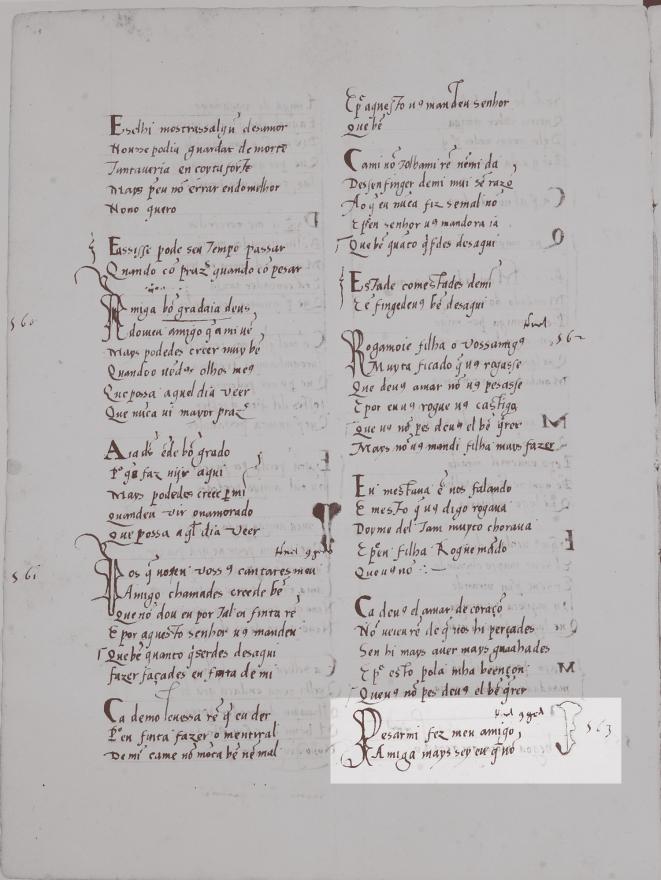 E selhi mostrassalgũ desamor
Non xe podia guardar de morte
Tantaveria en coyta forte
Mays peu nõ errar endo melhor
Nono quero
E assisse pode seu tempo passar
Quando cõ praz quando cõ pesar
560
Amiga bõ grad aia deus
do meu amigo q̃ a mi uẽ
Mays podedes creer muy bẽ
Quando o
olhos me9
Que possa aquel dia veer
Que nũca ui mayor praz
Aia d's ẽde bõ grado
Por q̃ o faz uijr aqui
Mays podedes creer per mi
Quandeu vir o namorado
Que possa aql dia veer
561
Pos q̃
voss9 cantares meu
Amigo chamades creede bẽ
Que nõ dou eu por tal
finta rẽ
E por aquesto senhor u9 mandeu
Que bẽ quanto q̃
des desaqui
fazer façades en finta de mi
Ca demo
essa rẽ q̃ eu der
Per en finta fazer o mentiral
De mi ca me nõ mõca bẽ nẽ mal
E per aquesto u9 mandeu senhor
Que bẽ
Ca mi nõ tolhami rẽ nẽ mi da
Dessenfinger de mi mui sẽ razõ
Ao q̃ eu nũca fiz se mal nõ
E pen senhor u9 mandora ia
Que bẽ quãto q̃sdes desaqui
Estade comestades de mi
E ẽfingedeu9 bẽ desaqui
562
Rogamoie filha o vossamig9
Muyta ficado q̃ u9 rogasse
Que deu9 amar nõ u9 pesasse
E por en u9 rogue u9 castigo
Que u9 nõ pes deu9 el bẽ q̃rer
Mays nõ u9 mandi filha mays fazer
Eu mestava ẽ vos falando
E mesto q̃ u9 digo rogava
Doyme del tam muyto chorava
E pen filha rogue mãdo
Que u9 nõ
Ca deu9 el amar de coraçõ
Nõ veieu rẽ de q̃ vos hi perçades
Sen hi mays aver mays guaahades
E por esto pola mha beençon
Que u9 nõ pes deu9 el bẽ q̃rer
563
Pesarmi fez meu amigo
Amiga mays sey eu q̃ nõ